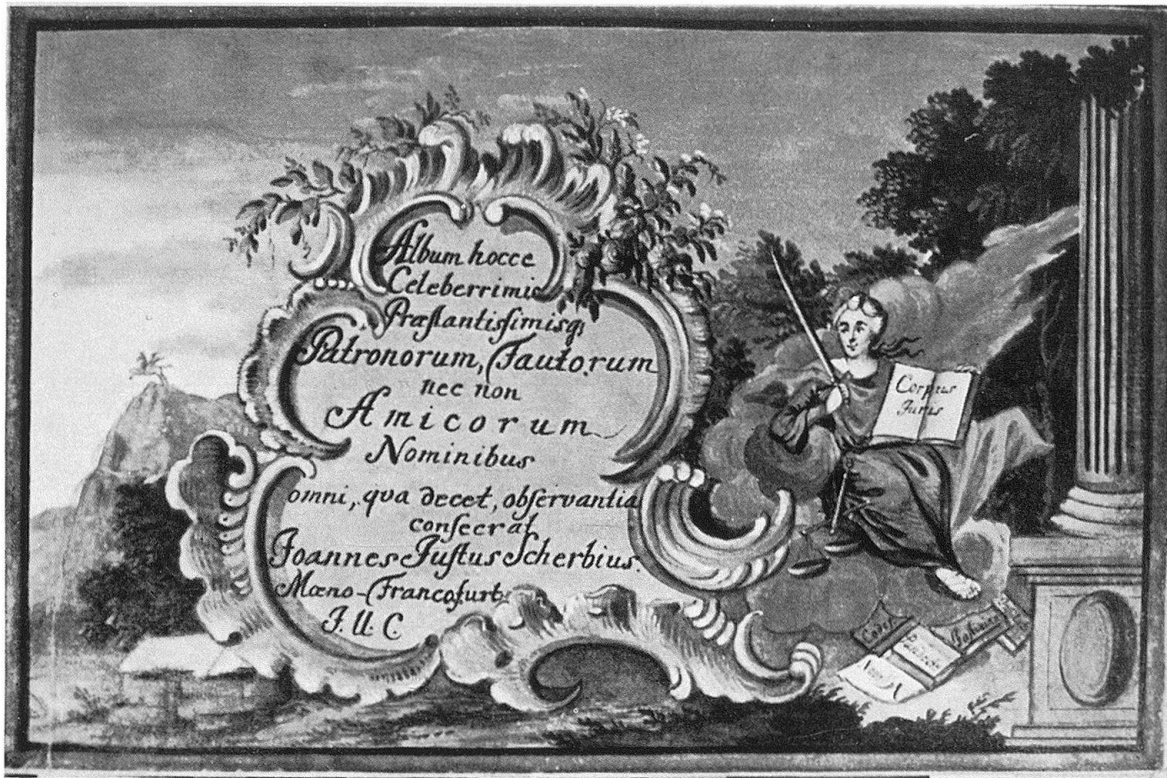 Album hocce
Celeberrimis
Præſtantiſſimisq;
Patronorum, Fautorum
nec non
Amicorum
Nominibus
omni, qva decet, obſervantia
conſecrat
Joannes Juſtus Scherbius.
Mœno-Francofurt:
J. U. C.
Corpus
Juris
Codex